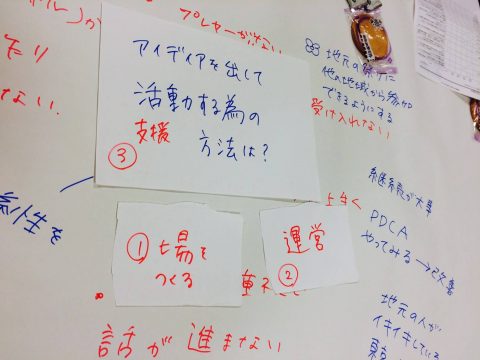 プレヤーがいない
たり
ない.
アイディアを出して
活動する為の
支援 方法は?
③
地元の祭りに
他の地域から参加
できるようにする
受け入れない
継続が大事
PDCA
やってみる→改善
地元の人が
イキイキしている
東京
①場を
つくる
運営
②
上手く
性を
話が進まない